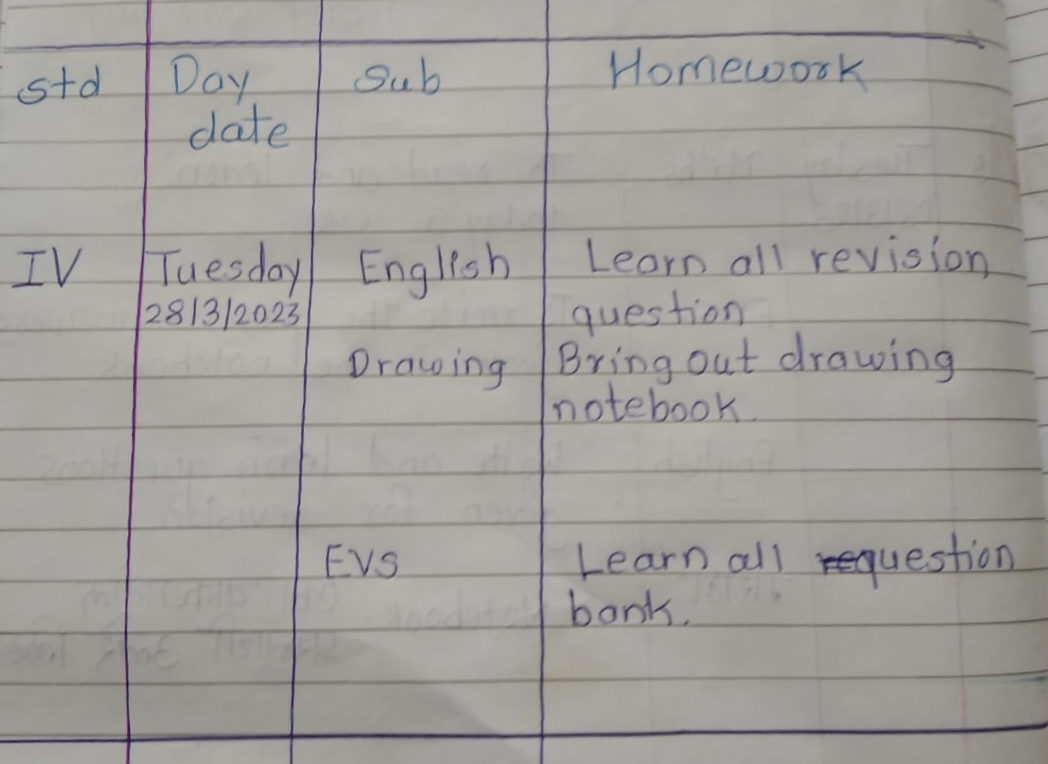 std Day Sub Homework
date
IV Tuesday English Learn all revision
28/3/2023 question
Drawing Bring out drawing
notebook.
EVS Learn all question
bank.